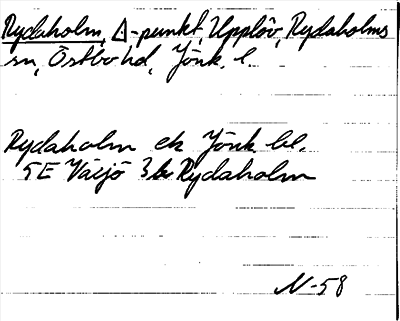 Rydaholm, Δ-punkt, Upplöv, Rydaholms
sn, Östbo hd, Jönk. l.
Rydaholm ek Jönk. bl.
5E Växjö 3b Rydaholm
N-58